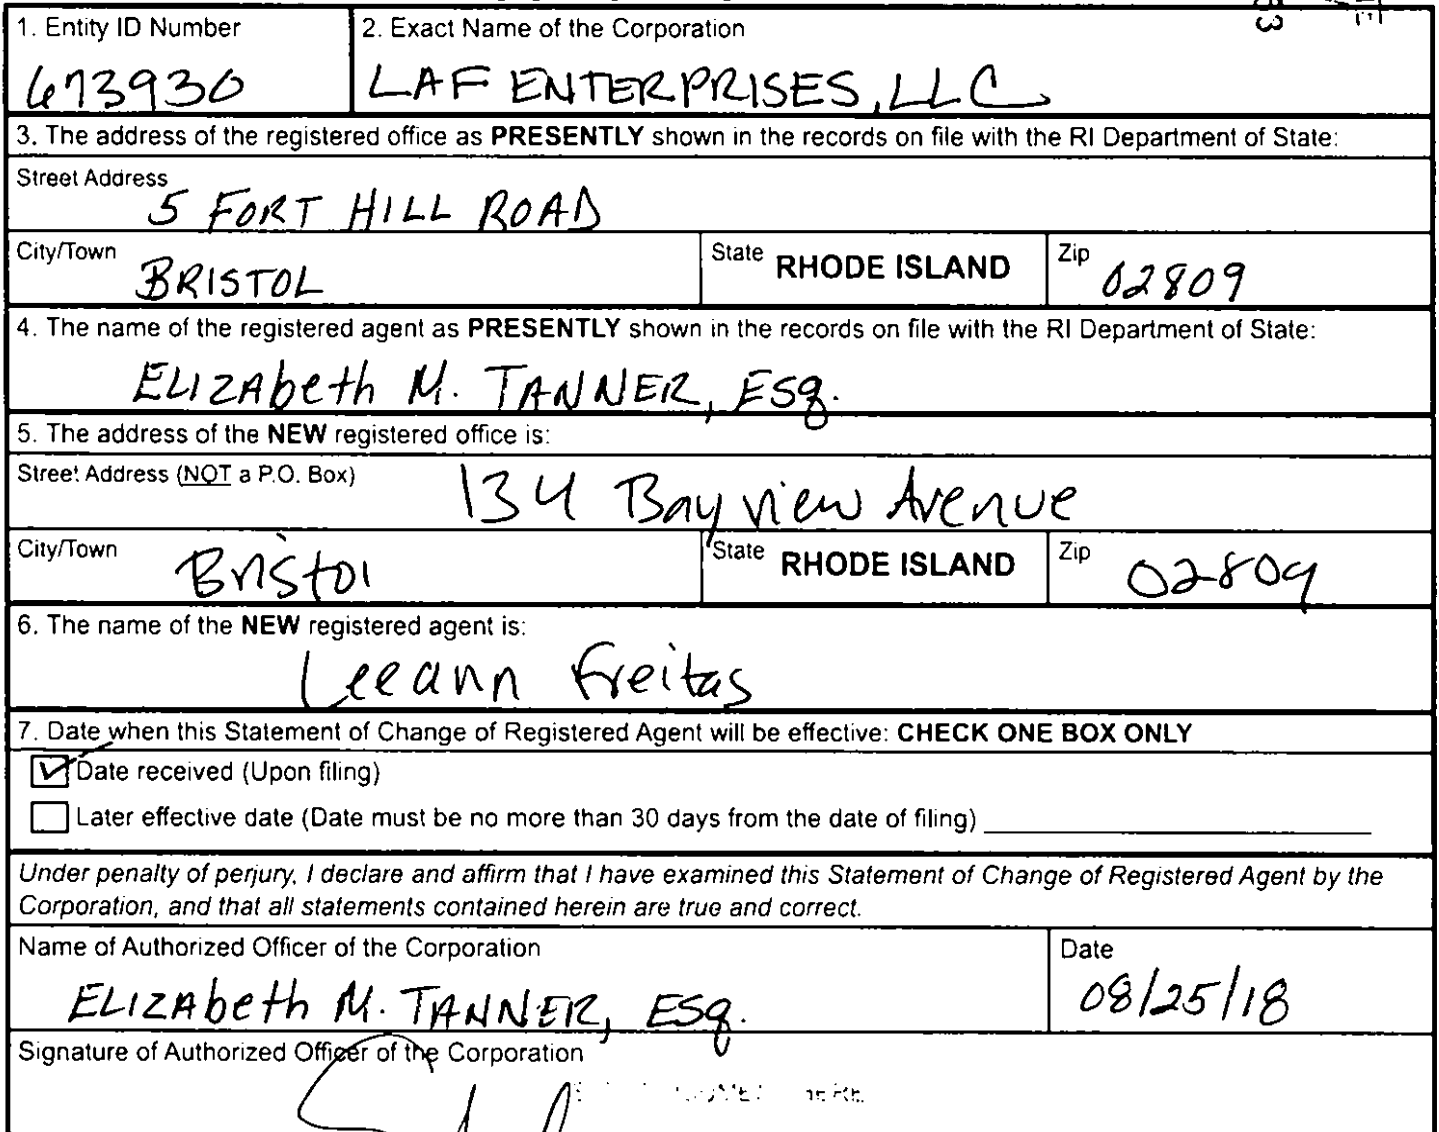 1. Entity ID Number
2. Exact Name of the Corporation
673930
LAF ENTERPRISES, LLC
3. The address of the registered office as PRESENTLY shown in the records on file with the RI Department of State:
Street Address
5 FORT HILL ROAD
City/Town
BRISTOL
State RHODE ISLAND
Zip
02809
4. The name of the registered agent as PRESENTLY shown in the records on file with the RI Department of State:
ELIZAbeth M. TANNER, ESq.
5. The address of the NEW registered office is:
Street Address (NOT a P.O. Box)
134 Bayview Avenue
City/Town
Bristol
State RHODE ISLAND
Zip
02809
6. The name of the NEW registered agent is:
Leeann Freitas
7. Date when this Statement of Change of Registered Agent will be effective: CHECK ONE BOX ONLY
Date received (Upon filing)
Later effective date (Date must be no more than 30 days from the date of filing)
Under penalty of perjury, I declare and affirm that I have examined this Statement of Change of Registered Agent by the
Corporation, and that all statements contained herein are true and correct.
Name of Authorized Officer of the Corporation
ELIZAbeth M. TANNER, ESq.
Date
08/25/18
Signature of Authorized Officer of the Corporation